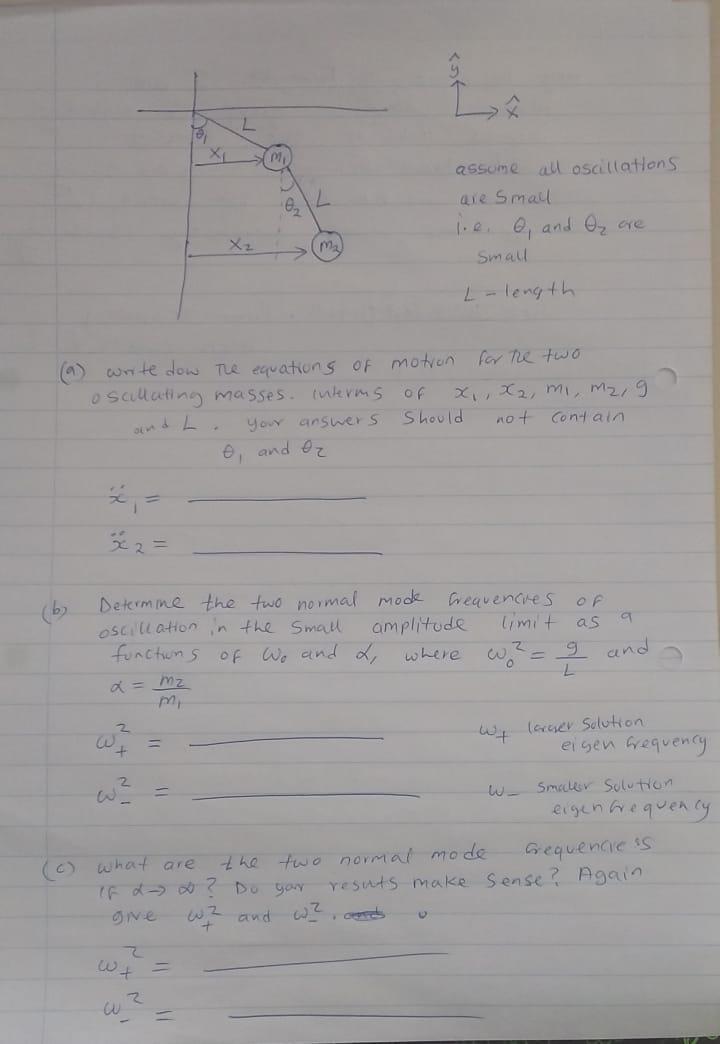 ŷ
x̂
θ₁
L
x₁
m₁
θ₂
L
x₂
m₂
assume all oscillations
are small
i.e. θ₁ and θ₂ are
small
L - length
(a) write dow the equations of motion for the two
oscillating masses. interms of x₁, x₂, m₁, m₂, g
and L. your answers should not contain
θ₁ and θ₂
ẍ₁ = ________
ẍ₂ = ________
(b) Determine the two normal mode frequencies of
oscillation in the small amplitude limit as a
functions of ω₀ and α, where ω₀² = g/L and
α = m₂/m₁
ω₊² = ________ ω₊ larger solution
eigen frequency
ω₋² = ________ ω₋ smaller solution
eigen frequency
(c) what are the two normal mode frequencies
if α → ∞? Do your results make sense? Again
give ω₊² and ω₋².
ω₊² = ________
ω₋² = ________